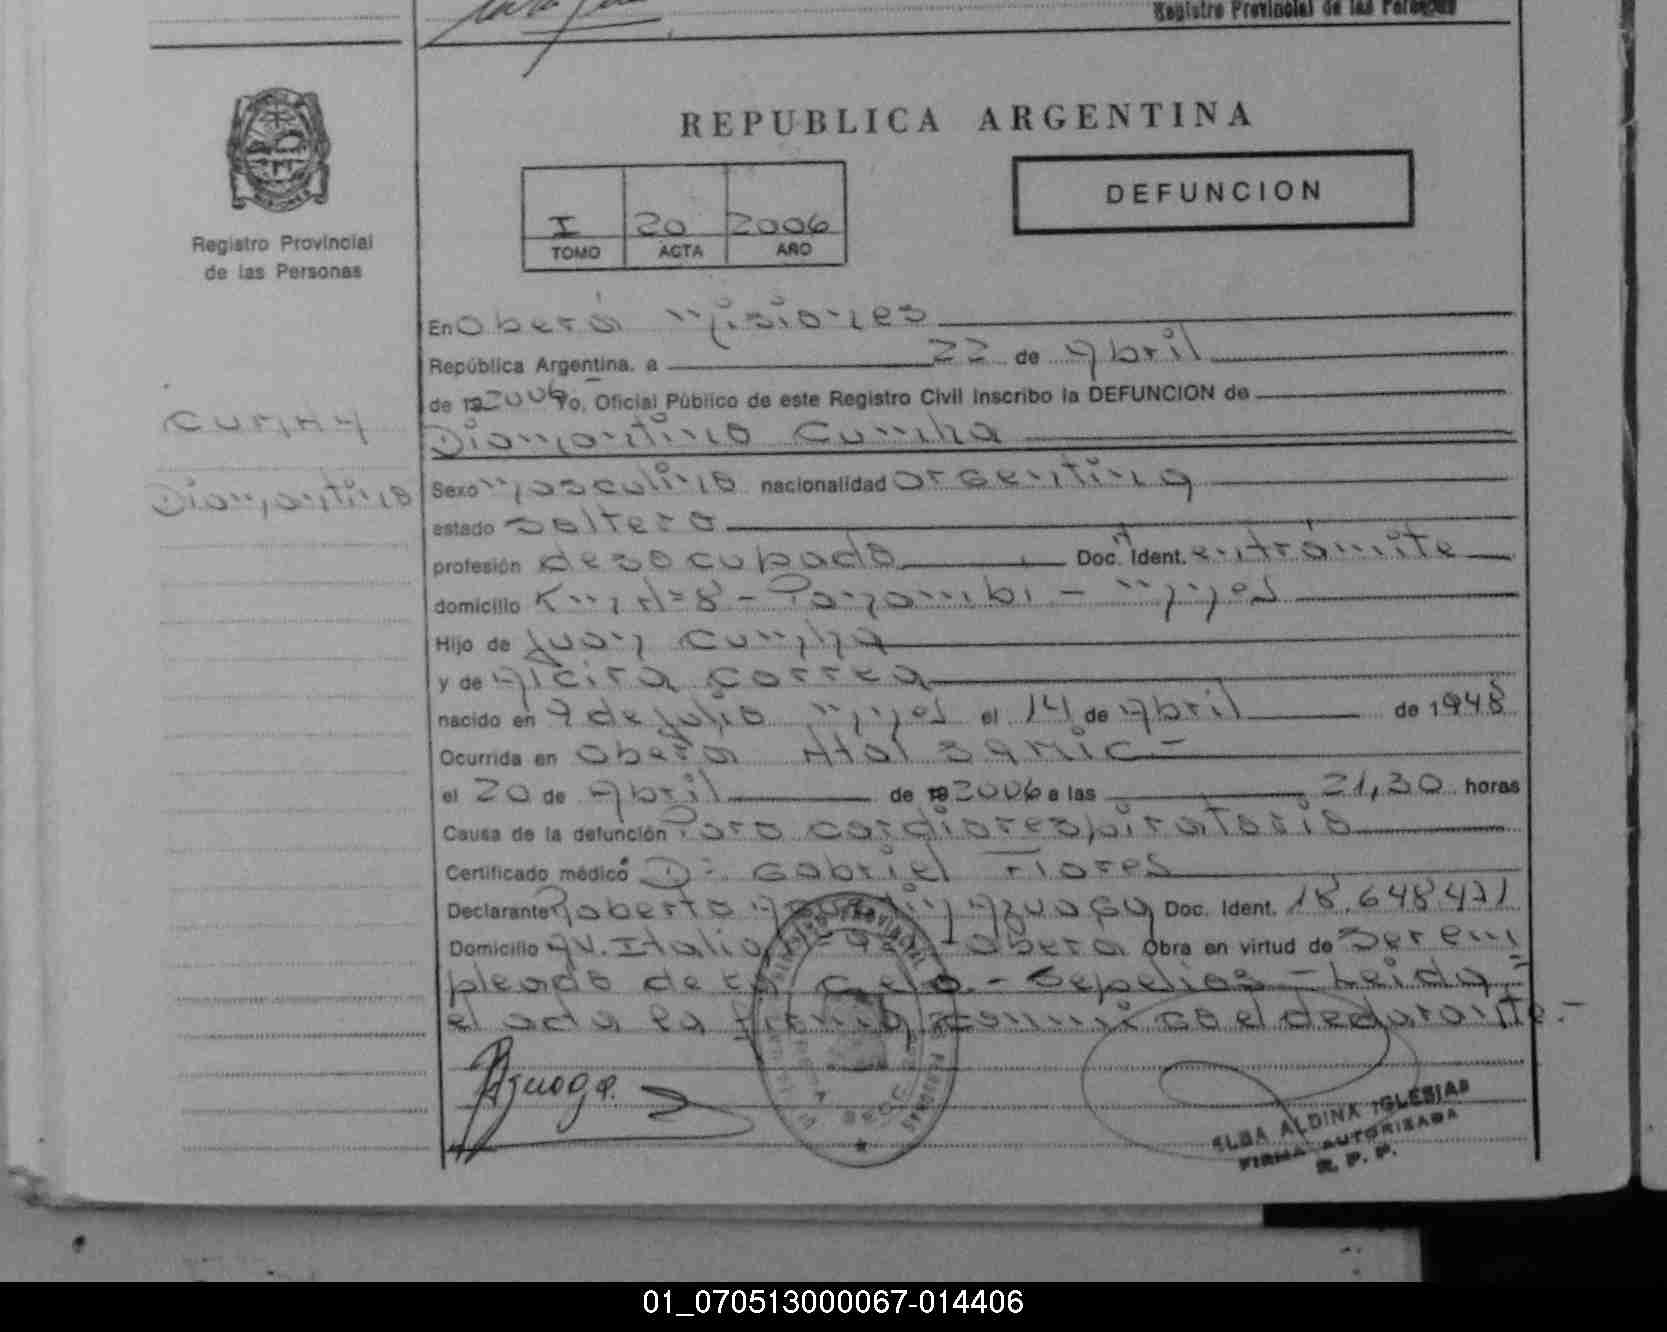 Registro Provincial de las Personas
REPUBLICA ARGENTINA
DEFUNCION
I 20 2006
TOMO ACTA AÑO
Registro Provincial
de las Personas
Cunha
Diamantino
En Oberá Misiones
República Argentina, a 22 de Abril
de 19 2006 Yo, Oficial Público de este Registro Civil Inscribo la DEFUNCION de
Diamantino Cunha
Sexo masculino nacionalidad argentina
estado soltero
profesión desocupado Doc. Ident. en trámite
domicilio Km Nº 8 - Panambi - Mnes
Hijo de Juan Cunha
y de Alcira Correa
nacido en 9 de Julio Mnes el 14 de Abril de 1948
Ocurrida en Oberá Htal SAMIC -
el 20 de Abril de 19 2006 a las 21,30 horas
Causa de la defunción Paro cardiorespiratorio
Certificado médico Dr. Gabriel Flores
Declarante Roberto Azuaga Doc. Ident. 18.648.471
Domicilio Av. Italia Oberá Obra en virtud de ser em
pleado de - Sepelios - Leida
el acta la firma conmigo el declarante.-
Azuaga.
ELBA ALDINA IGLESIAS
FIRMA AUTORIZADA
R. P. P.
01_070513000067-014406